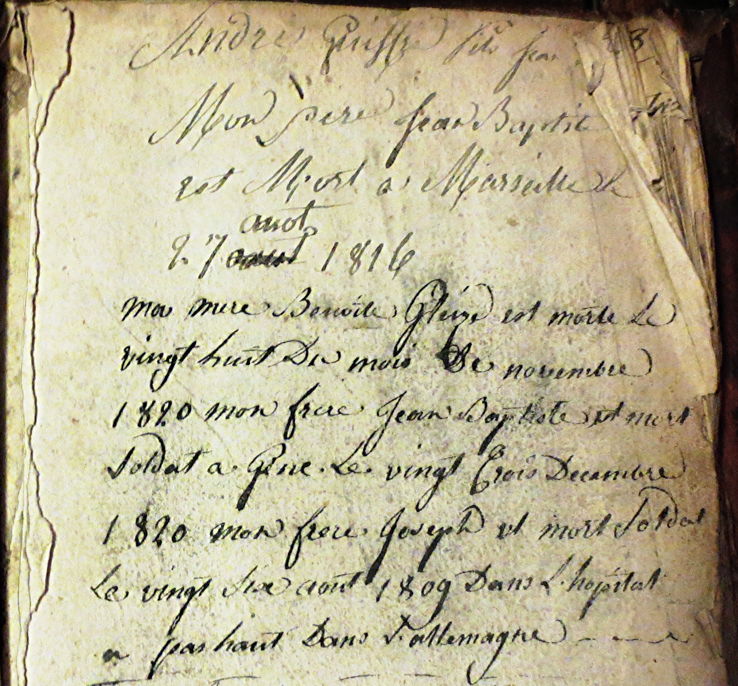 André fils
Mon pere Jean Baptiste
est Mort a Marseille le
auot
27 1816
ma mere Benoite Gleize est morte Le
vingt huit Du mois De novembre
1820 mon frere Jean Baptiste et mort
Soldat a Gene Le vingt trois Decembre
1820 mon frere Joseph et mort Soldat
Le vingt six aout 1809 Dans L'hopital
a pashaut Dans L'allemagne